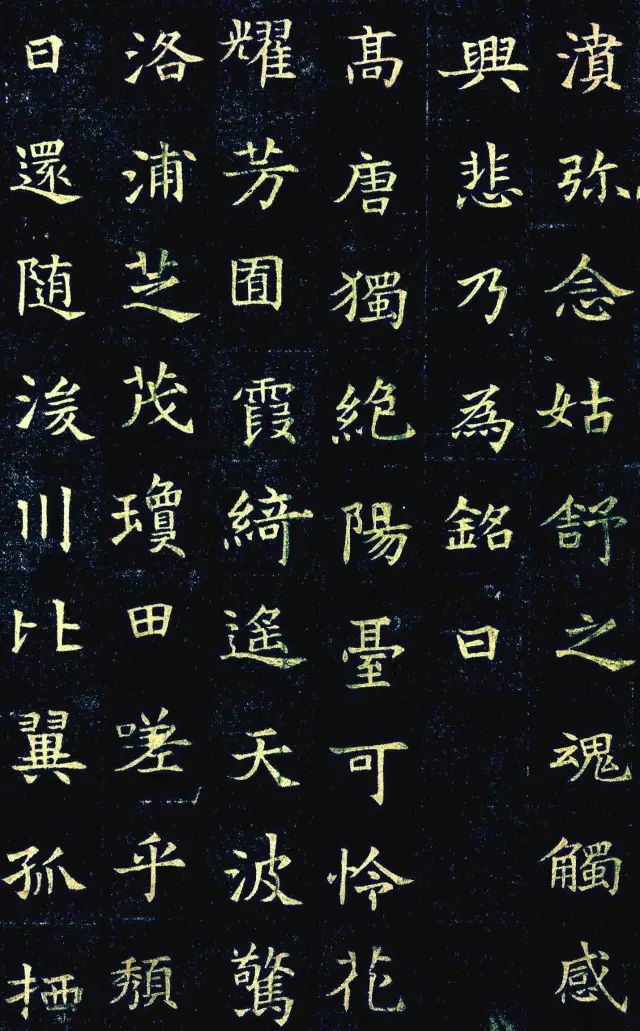 濆弥念姑舒之魂觸感
興悲乃為銘曰
髙唐獨絶陽臺可怜花
耀芳囿霞綺遙天波驚
洛浦芝茂瓊田嗟乎頹
日還随浚川比翼孤栖